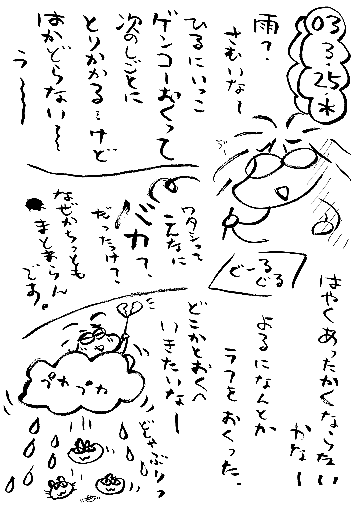 03
3.
25.
水
雨?
さむいな〜
ひるにいっこ
ゲンコーおくって
次のしごとに
とりかかる…けど
はかどらない〜
う〜〜
ワタシって
こんなに
バカ?
だったっけ?
なぜかちっとも
まとまらん
です。
どーる
ぐる
はやくあったかくならない
かなー
よるになんとか
ラフをおくった。
どこかとおくへ
いきたいなー
プカプカ
どしゃぶりっ